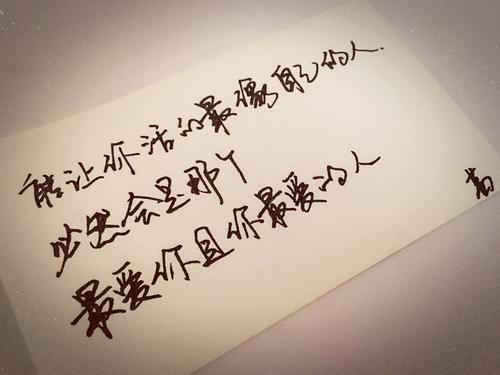 能让你活的最像自己的人.
必然会是那丫
最爱你且你最爱的人